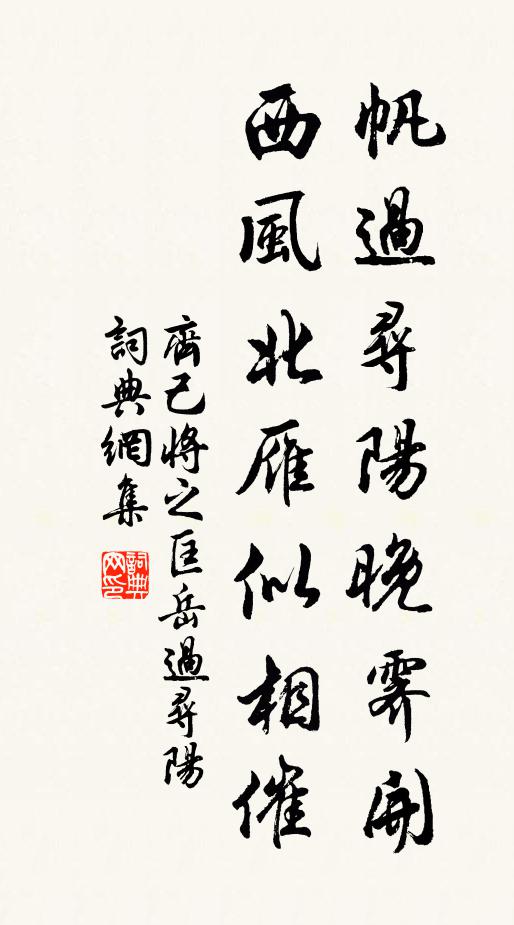 帆過尋陽晚霽開
西風北雁似相催
齊己將之匡岳過尋陽
詞典網集
詞典網印